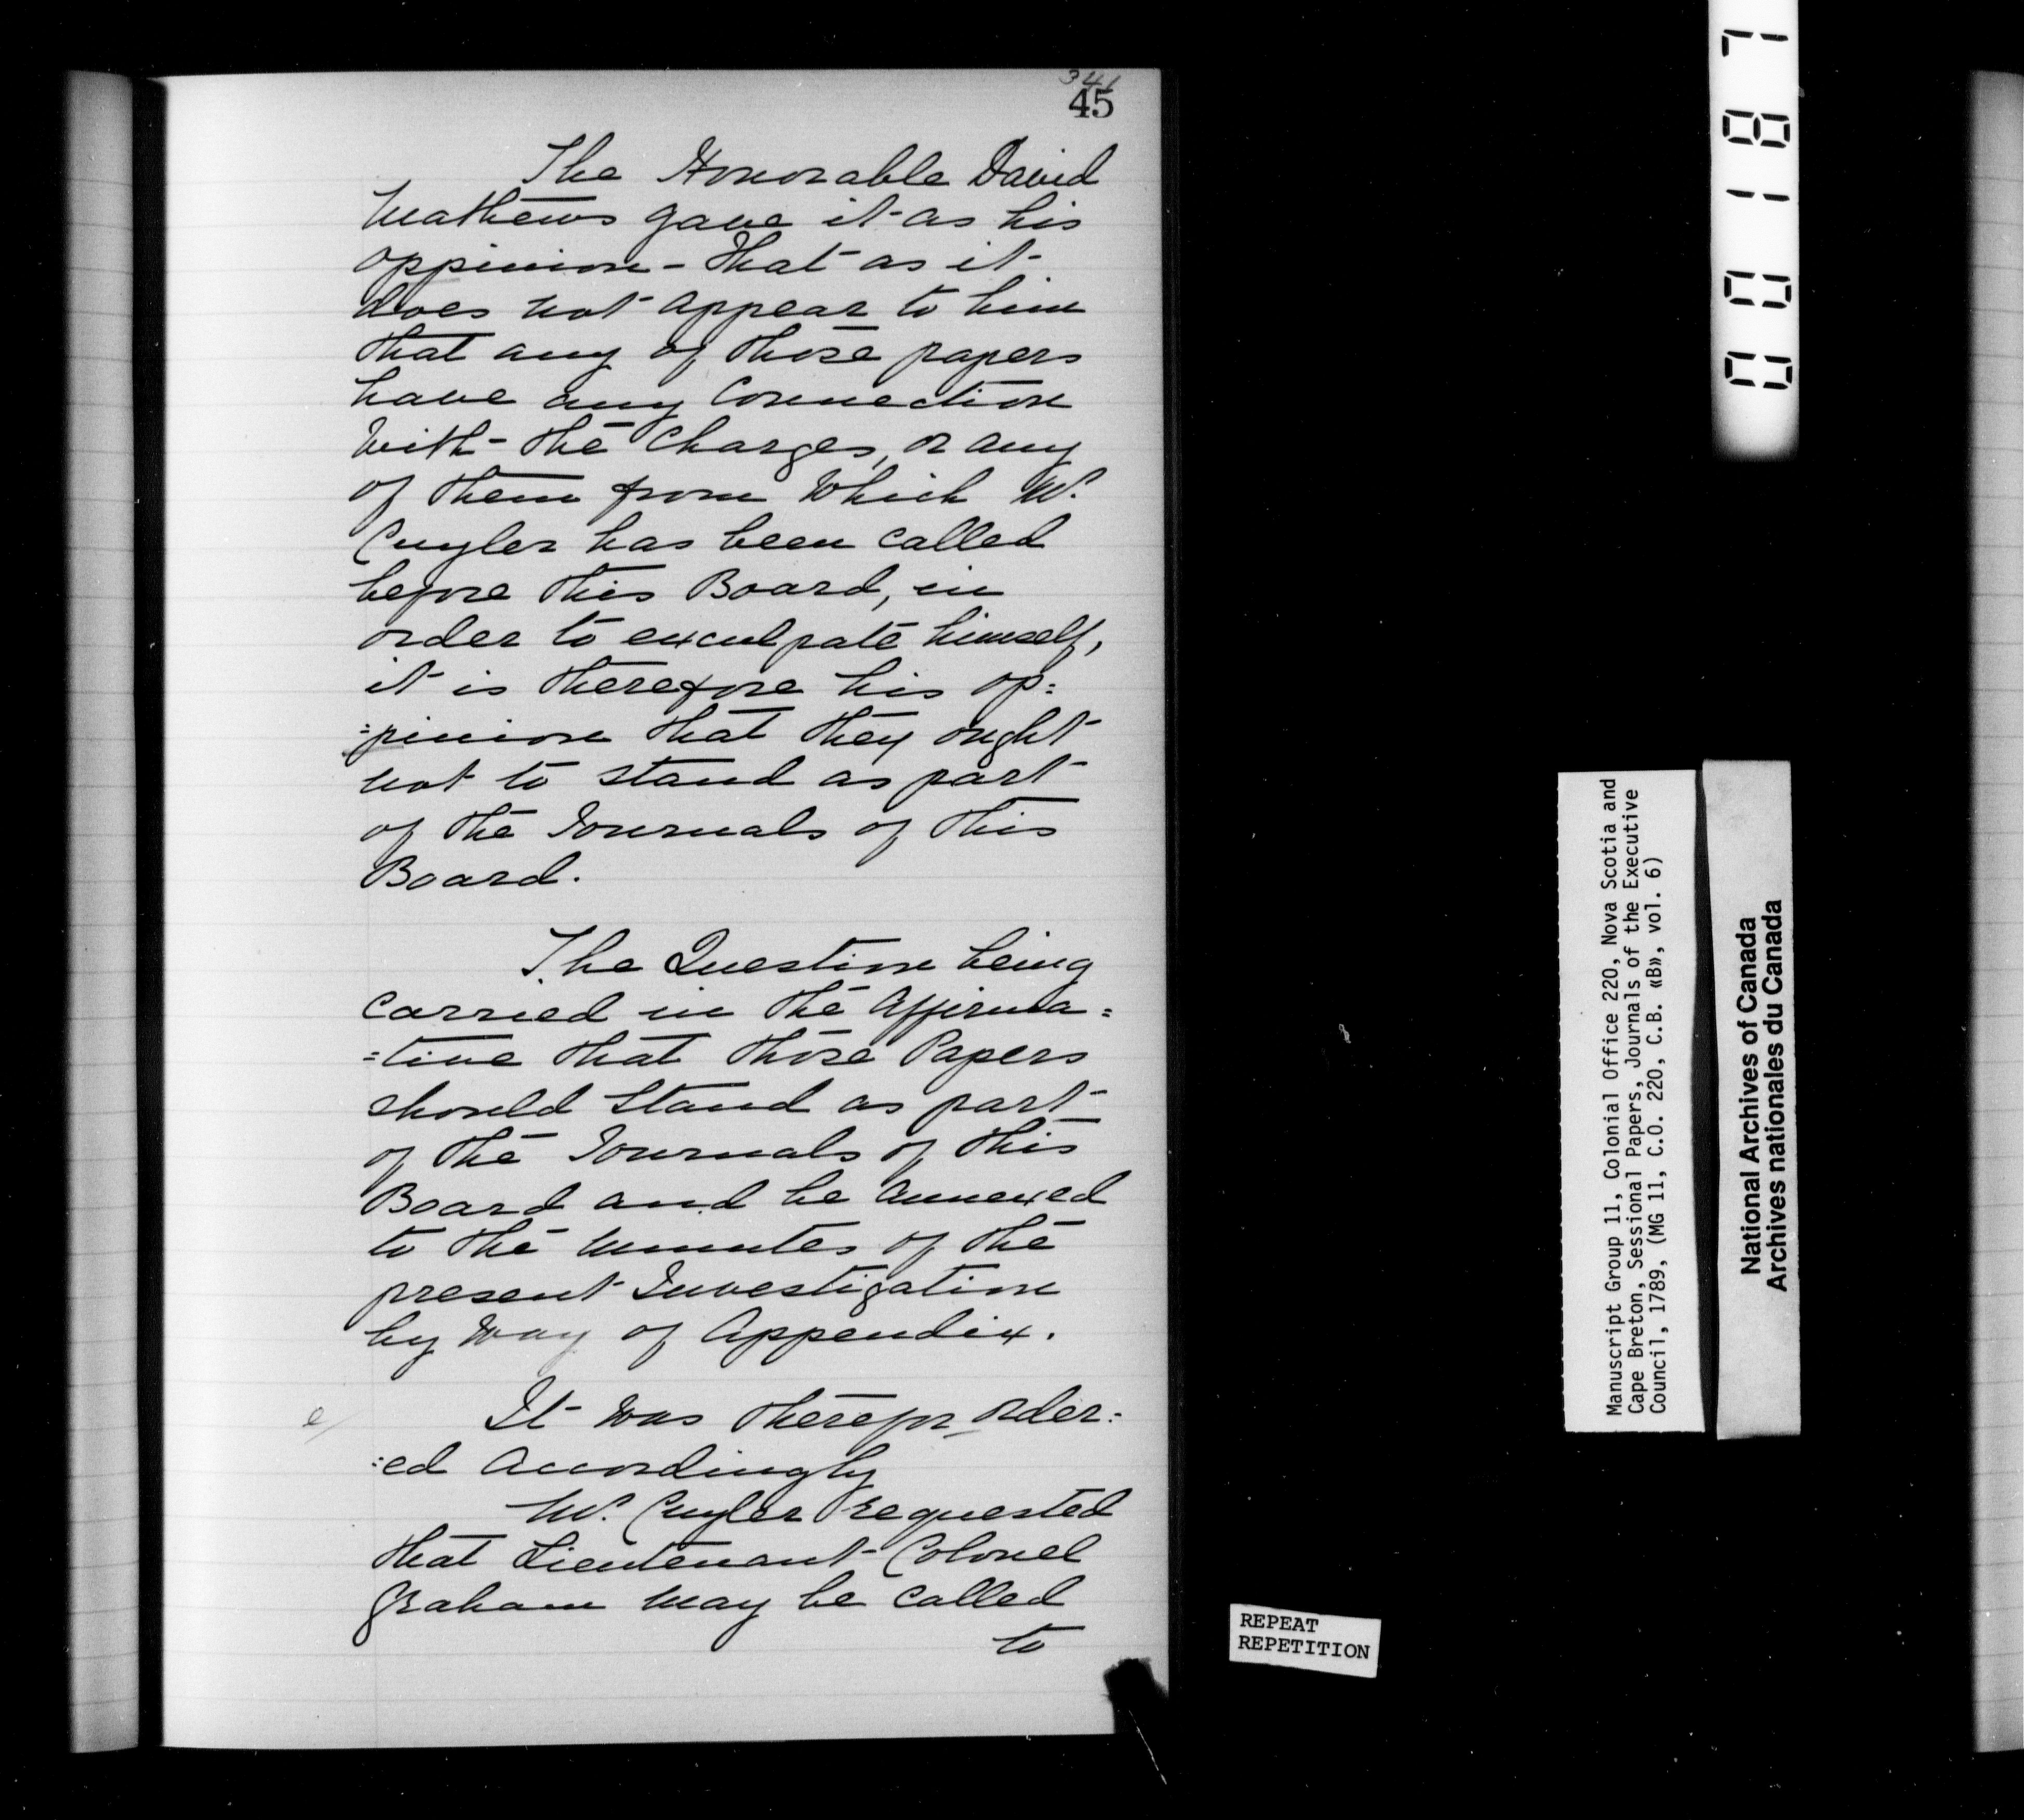 341
45
The Honorable David
Mathews gave it as his
oppinion - that as it
does not appear to him
that any of those papers
have any Connection
With the Charges, or any
of them from Which Mr.
Cuyler has been called
before this Board, in
order to exculpate himself,
it is therefore his op:
:pinion that they ought
not to stand as part
of the Journals of this
Board.
The Question being
Carried in the Affirma=
=tive that those Papers
should Stand as part
of the Journals of this
Board and be Annexed
to the Minutes of the
present Investigation
by Way of Appendix.
e/
It Was therefor order:
:ed Accordingly
Mr. Cuyler requested
that Lieutenant Colonel
Graham may be called
to
REPEAT
REPETITION
Manuscript Group 11, Colonial Office 220, Nova Scotia and
Cape Breton, Sessional Papers, Journals of the Executive
Council, 1789, (MG 11, C.O. 220, C.B. «B», vol. 6)
National Archives of Canada
Archives nationales du Canada
001187